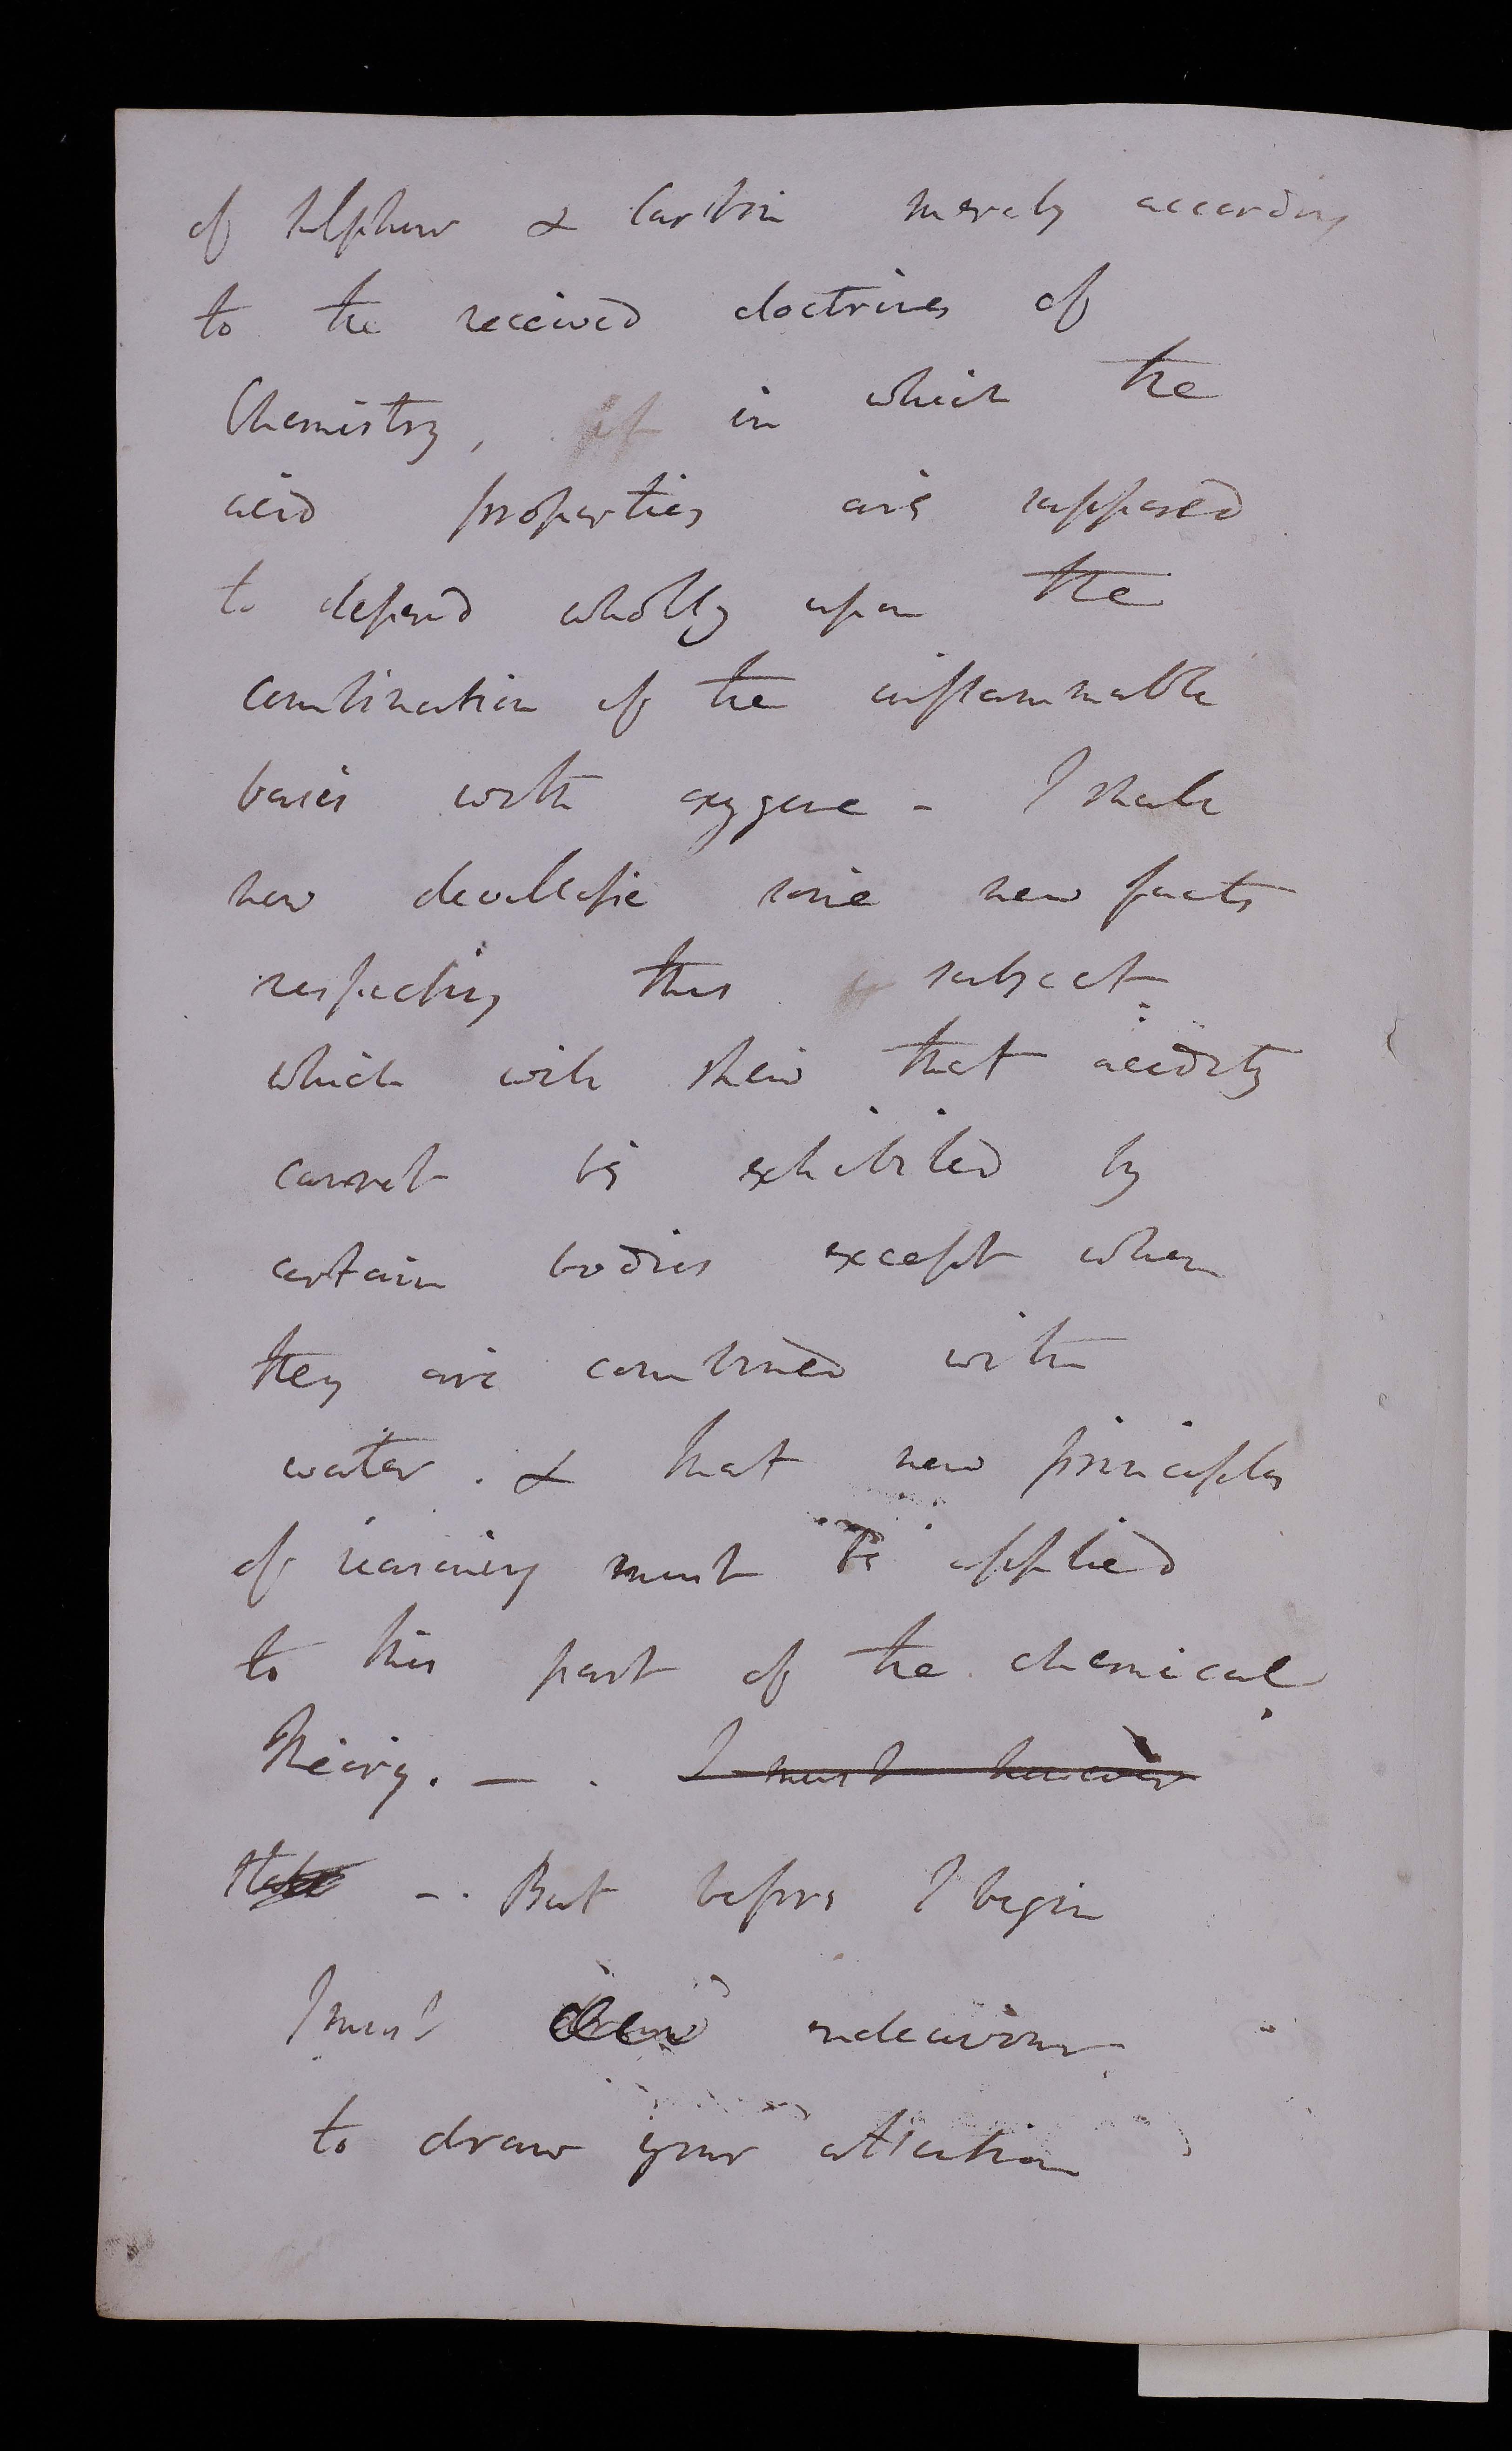 of sulphur & Carbon merely according
to the received doctrines of
Chemistry, in which the
acid properties are supposed
to depend wholly upon the
combination of the inflammable
basis with oxygene - I shall
now devellope some new facts
respecting this subject
which will shew that acidity
cannot be exhibited by
certain bodies except when
they are combined with
water. & that new principles
of reasoning must be applied
to this part of the chemical
theory. - . I must however
state -. But before I begin
I must endeavour
to draw your attention